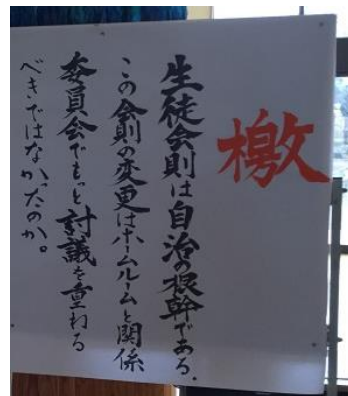 檄
生徒会則は自治の根幹である.
この会則の変更はホームルームと関係
委員会でもっと討議を重ねる
べきではなかったのか。